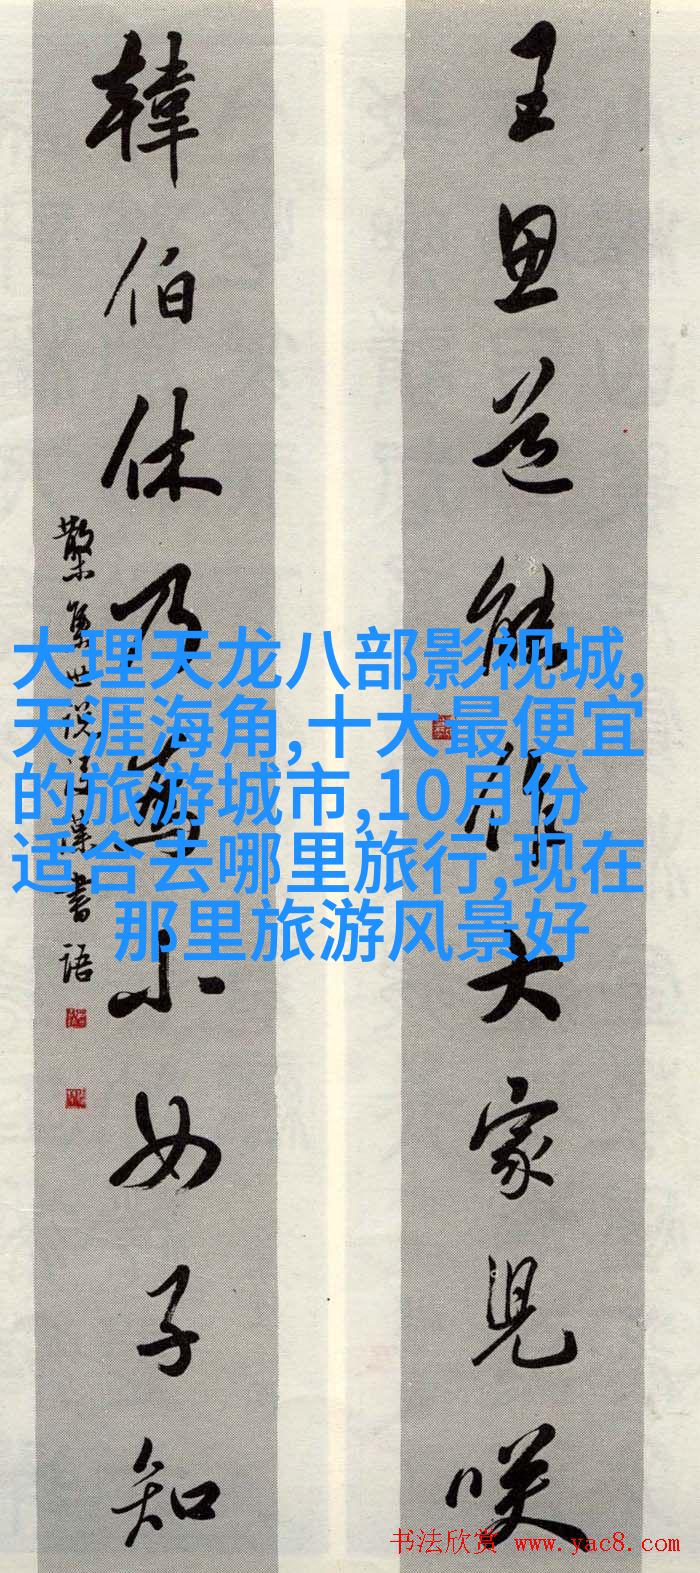 王思道能作大家兒咲
韓伯休乃為小女子知
散木集世說後漢書語
大理天龙八部影视城,
天涯海角,十大最便宜
的旅游城市,10月份
适合去哪里旅行,现在
那里旅游风景好
书法欣赏 www.yac8.com